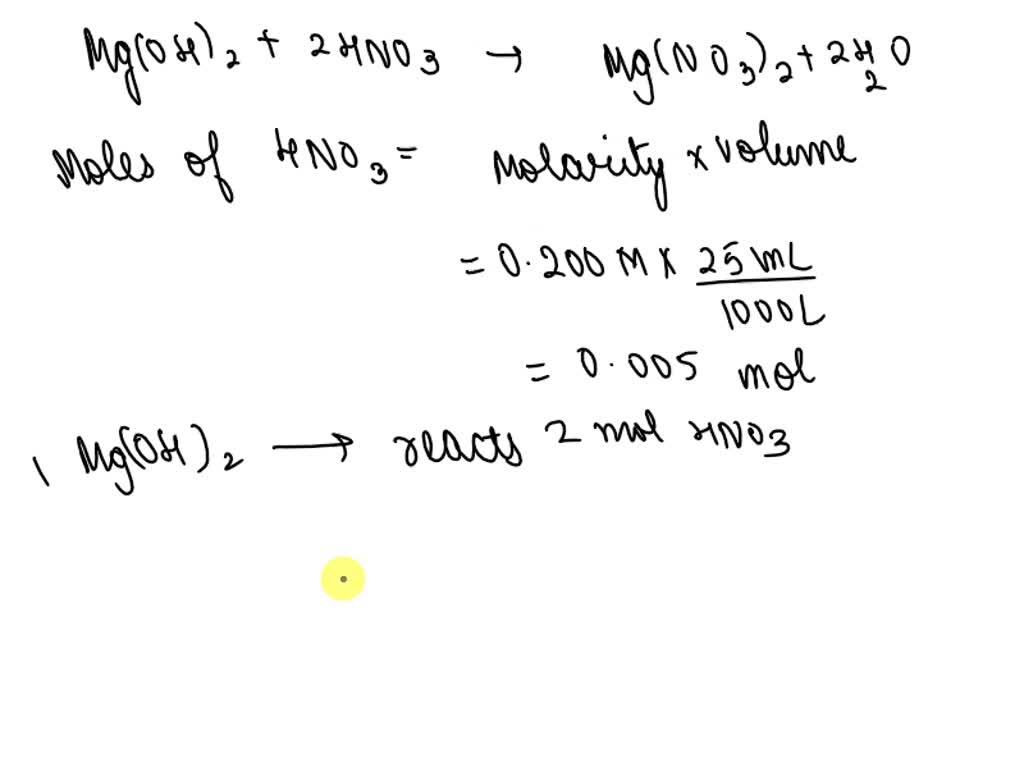 Mg(OH)₂ + 2HNO₃ → Mg(NO₃)₂ + 2H₂O
Moles of HNO₃ = Molarity × volume
= 0.200 M × 25 mL / 1000L
= 0.005 mol
1 Mg(OH)₂ ⟶ reacts 2 mol HNO₃